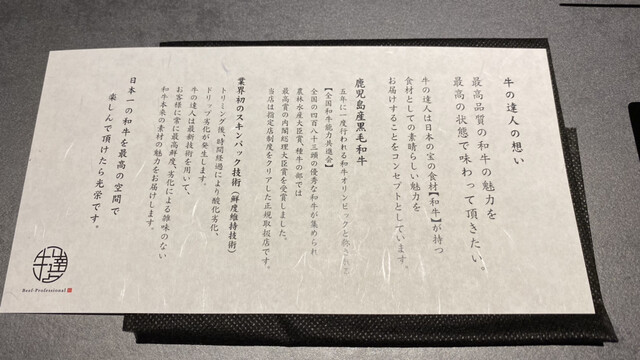 牛の達人の想い
最高品質の和牛の魅力を
最高の状態で味わって頂きたい。
牛の達人は日本の宝の食材【和牛】が持つ
食材としての素晴らしい魅力を
お届けすることをコンセプトとしています。
鹿児島産黒毛和牛
五年に一度行われる和牛オリンピックと称される
【全国和牛能力共進会】
全国の四百八十三頭の優秀な和牛が集められ
農林水産大臣賞、種牛の部では
最高賞の内閣総理大臣賞を受賞しました。
当店は指定店制度をクリアした正規取扱店です。
業界初のスキンパック技術（鮮度維持技術）
トリミング後、時間経過により酸化劣化、
ドリップ劣化が発生します。
牛の達人は最新技術を用いて、
お客様に常に最高鮮度、劣化による雑味のない
和牛本来の素材の魅力をお届けします。
日本一の和牛を最高の空間で
楽しんで頂けたら光栄です。
牛達人
Beef-Professional